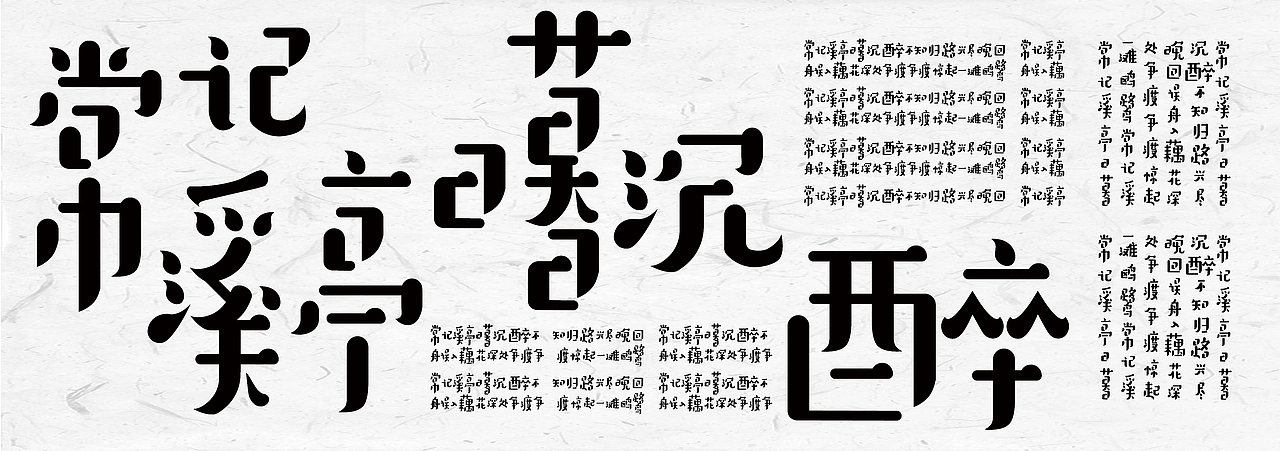 常记溪亭日暮沉醉
常记溪亭日暮沉醉不知归路兴尽晚回 常记溪亭
舟误入藕花深处争渡争渡惊起一滩鸥鹭 舟误入藕
常记溪亭日暮沉醉不知归路兴尽晚回 常记溪亭
舟误入藕花深处争渡争渡惊起一滩鸥鹭 舟误入藕
常记溪亭日暮沉醉不知归路兴尽晚回 常记溪亭
舟误入藕花深处争渡争渡惊起一滩鸥鹭 舟误入藕
常记溪亭日暮沉醉不知归路兴尽晚回 常记溪亭
常记溪亭日暮沉醉不 知归路兴尽晚回 常记溪亭日暮沉醉不
舟误入藕花深处争渡争 渡惊起一滩鸥鹭 舟误入藕花深处争渡争
常记溪亭日暮沉醉不 知归路兴尽晚回 常记溪亭日暮沉醉不
舟误入藕花深处争渡争 渡惊起一滩鸥鹭 舟误入藕花深处争渡争
常记溪亭日暮
沉醉不知归路兴尽
晚回误舟入藕花深
处争渡争渡惊起
一滩鸥鹭常记溪
常记溪亭日暮
常记溪亭日暮
沉醉不知归路兴尽
晚回误舟入藕花深
处争渡争渡惊起
一滩鸥鹭常记溪
常记溪亭日暮